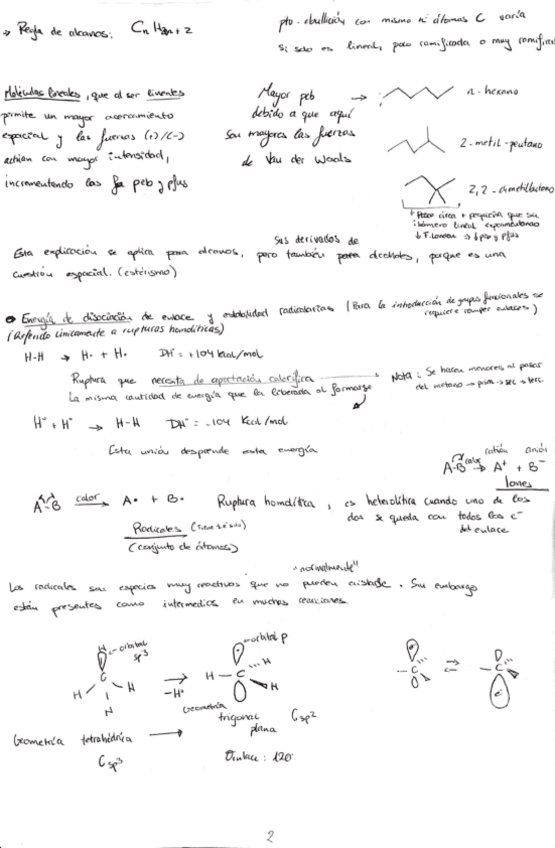 → Regla de alcanos: CnH2n+2
pto. ebullición con mismo nº átomos C varía
si solo es lineal, poco ramificada o muy ramificada
Moléculas lineales, que al ser lineales
permite un mayor acercamiento
espacial y las fuerzas (+)/(-)
actúan con mayor intensidad,
incrementando los peb y pfus
Mayor peb →
debido a que aquí
son mayores las fuerzas
de Van der Waals
n-hexano
2-metil-pentano
2,2-dimetilbutano
isómero lineal experimentando
↓ F. London → ↓ peb y pfus
Sus derivados de
Esta explicación se aplica para alcanos, pero también para alcoholes, porque es una
cuestión espacial. (esterismo)
• Energía de disociación de enlace y estabilidad radicalarias (Para la introducción de grupos funcionales se
requiere romper enlaces)
(Referido únicamente a rupturas homolíticas)
H-H → H· + H· DH° = +104 kcal/mol
Ruptura que necesita de aportación calorífica
La misma cantidad de energía que la liberada al formarse
Nota: Se hacen menores al pasar
del metano → prim → sec → terc.
H· + H· → H-H DH° = -104 kcal/mol
Esta unión desprende esta energía
catión anión
A-B calor → A+ + B-
Iones
A-B calor → A· + B· Ruptura homolítica, es heterolítica cuando uno de los
dos se queda con todos los e-
del enlace
Radicales
(conjunto de átomos)
"normalmente"
Los radicales son especies muy reactivas que no pueden aislarse. Sin embargo
están presentes como intermedios en muchas reacciones
H orbital sp3
C
H H
H
→
-H·
orbital p
H-C H
H
Geometría
trigonal
plana
Csp2
C ⇄ C
Geometría tetrahédrica →
Csp3
Enlace: 120
2